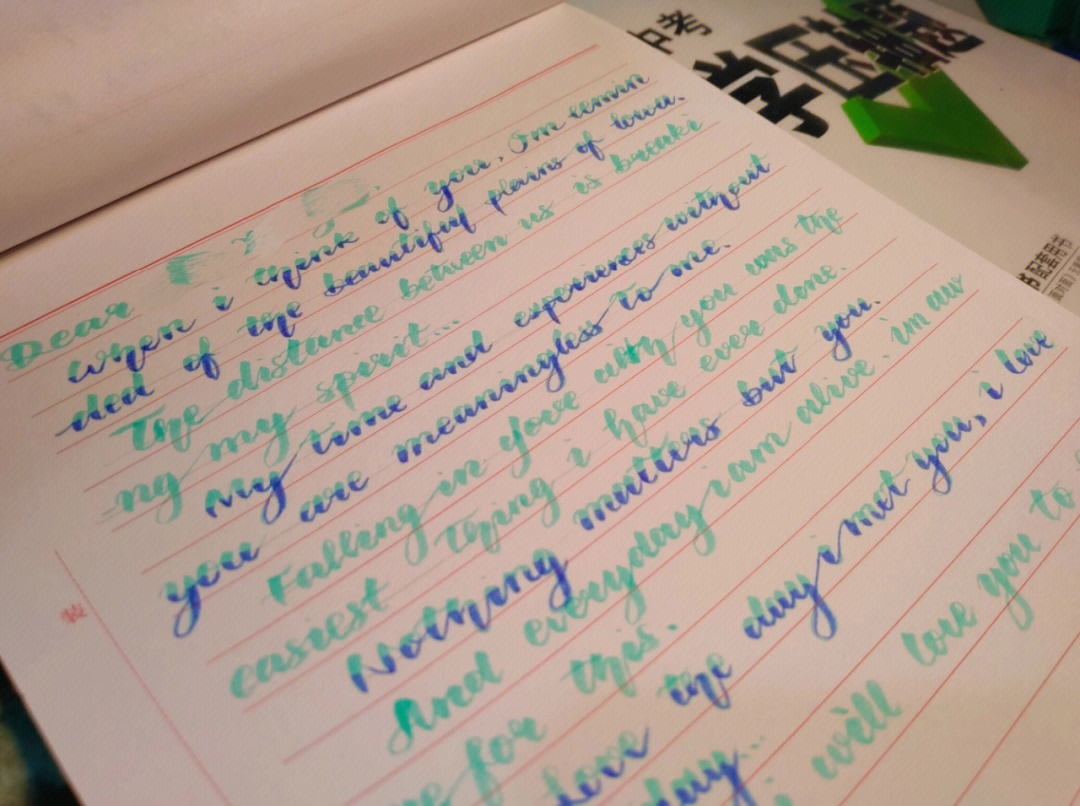 Dear
when i think of you, I'm remin
ded of the beautiful plains of Iowa.
The distance between us is breaki
ng my spirit...
My time and experiences without
you are meaningless to me.
Falling in love with you was the
easiest thing i have ever done.
Nothing matters but you.
And everyday i am alive. im aw
for this.
love the day i met you, i love
day... i will love you to
中考